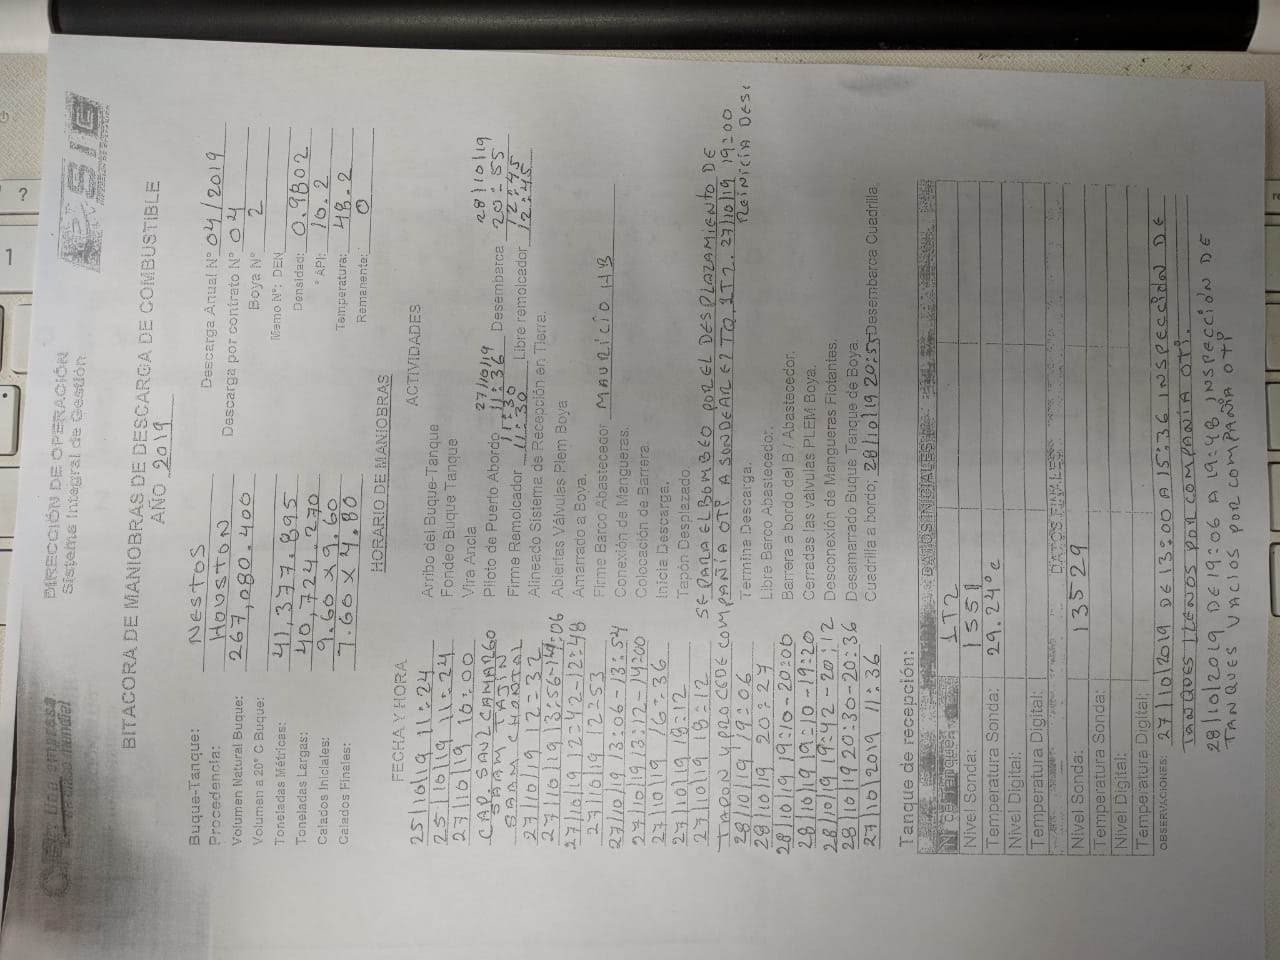 Una empresa
de clase mundial
DIRECCIÓN DE OPERACIÓN
Sistema Integral de Gestión
SIG
BITACORA DE MANIOBRAS DE DESCARGA DE COMBUSTIBLE
AÑO 2019
Buque-Tanque: NESTOS
Descarga Anual N° 04/2019
Procedencia: HOUSTON
Descarga por contrato N° 04
Volumen Natural Buque: 267,080.400
Boya N° 2
Volumen a 20° C Buque:
Memo N°: DEN
Toneladas Métricas: 41,377.895
Densidad: 0.9802
Toneladas Largas: 40,724.270
° API: 10.2
Calados Iniciales: 9.60 x 9.60
Temperatura: 48.2
Calados Finales: 7.60 x 4.80
Remanente: 0
HORARIO DE MANIOBRAS
FECHA Y HORA ACTIVIDADES
25/10/19 11:24 Arribo del Buque-Tanque
25/10/19 11:24 Fondeo Buque Tanque
27/10/19 10:00 Vira Ancla
27/10/19 28/10/19
CAP. SAUL CAMARGO Piloto de Puerto Abordo 11:36 Desembarca 20:55
SAAM TAJIN 11:30 12:45
SAAM CHONTAL Firme Remolcador 11:30 Libre remolcador 12:45
27/10/19 12:32 Alineado Sistema de Recepción en Tierra.
27/10/19 13:56-14:06 Abiertas Válvulas Plem Boya
27/10/19 12:42-12:48 Amarrado a Boya.
27/10/19 12:53 Firme Barco Abastecedor MAURICIO HB
27/10/19 13:06-13:54 Conexión de Mangueras.
27/10/19 13:12-14:00 Colocación de Barrera.
27/10/19 16:36 Inicia Descarga.
27/10/19 18:12 Tapón Desplazado.
27/10/19 18:12 SE PARA EL BOMBEO POR EL DESPLAZAMIENTO DE
TAPON Y PROCEDE COMPAÑÍA OTI A SONDEAR El TQ. 1T2. 27/10/19 19:00
REINICIA DESC
28/10/19 19:06 Termina Descarga.
28/10/19 20:27 Libre Barco Abastecedor.
28/10/19 19:10-20:00 Barrera a bordo del B / Abastecedor.
28/10/19 19:10-19:20 Cerradas las válvulas PLEM Boya.
28/10/19 19:42-20:12 Desconexión de Mangueras Flotantes.
28/10/19 20:30-20:36 Desamarrado Buque Tanque de Boya.
27/10/2019 11:36 Cuadrilla a bordo; 28/10/19 20:55 Desembarca Cuadrilla
Tanque de recepción:
DATOS INICIALES
N° de Tanque: 1T2
Nivel Sonda: 1551
Temperatura Sonda: 29.24°c
Nivel Digital:
Temperatura Digital:
DATOS FINALES
Nivel Sonda: 13529
Temperatura Sonda:
Nivel Digital:
Temperatura Digital:
OBSERVACIONES: 27/10/2019 DE 13:00 A 15:36 INSPECCIÓN DE
TANQUES LLENOS POR COMPAÑÍA OTI.
28/10/2019 DE 19:06 A 19:48 INSPECCIÓN DE
TANQUES VACIOS POR COMPAÑIA OTI